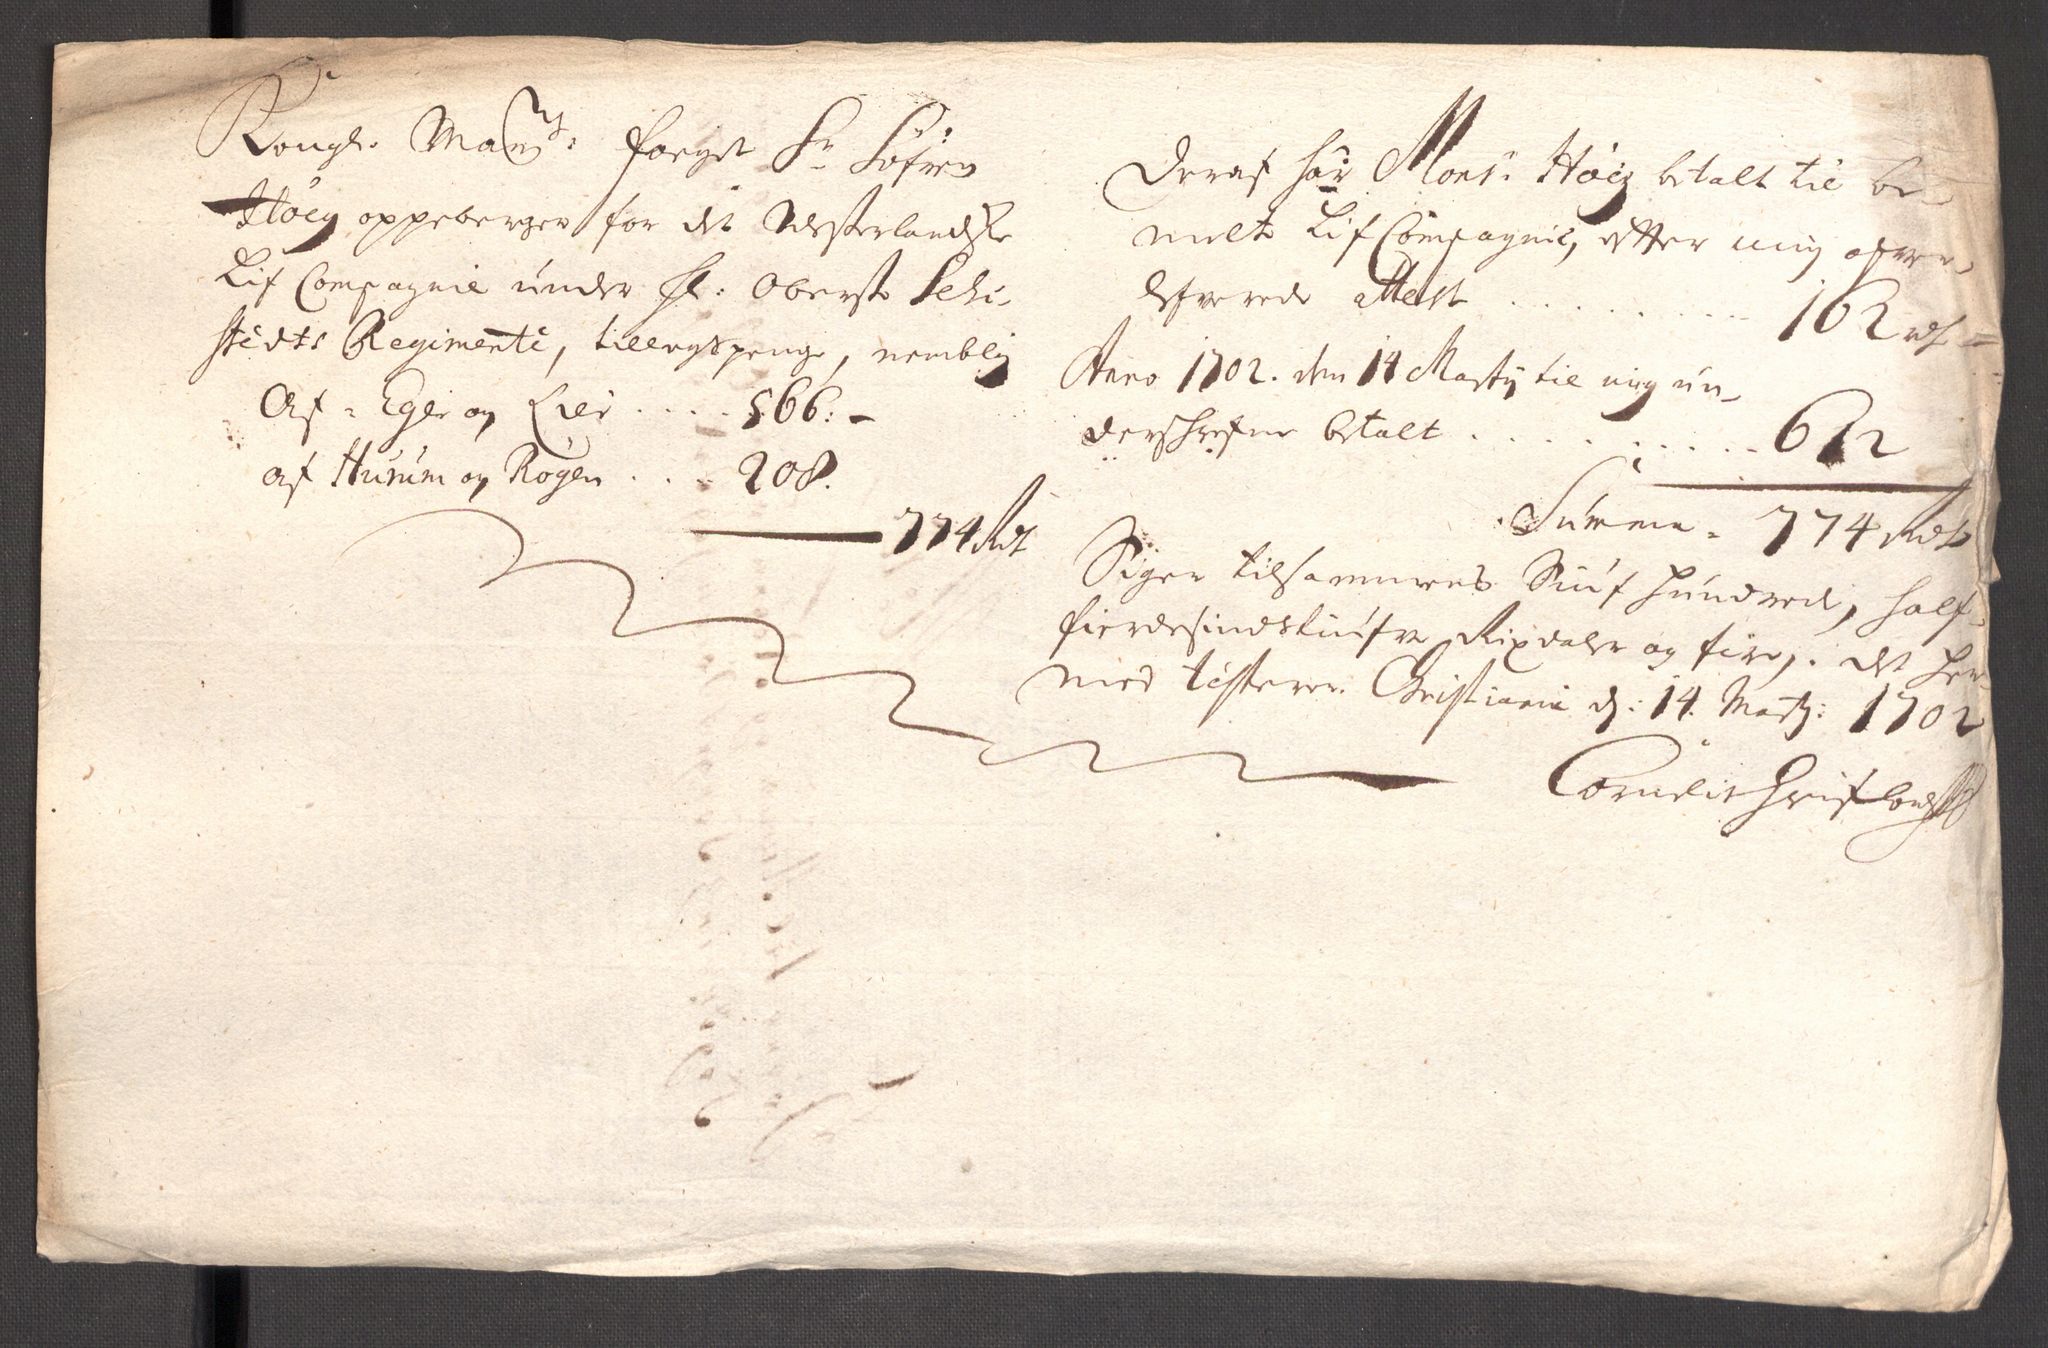 Kongl. Mayts: foeget Sr Søfren
Høeg oppeberger for det Vesterlandske
Lif Compagnie under Hr: Oberste Sehe-
stedts Regimente, tillegspenge, nemblig
Af Eger og Lier .... 566: -
af Hurum og Røgen .... 208.
774 Rdr
Deraf har Monsr Høeg betalt til be-
melte Lif Compagnie, efter min ofver-
lefverede Attest .......... 162 rdr
Anno 1702. den 14 Marty til mig un-
derschrefne betalt .......... 612
Summa - 774 Rdr
Siger tilsammens Siuf hundrede, half-
fierdesindstiufve Rixdaler og fire, det her-
med tilsterer. Christiania d: 14. Marty: 1702